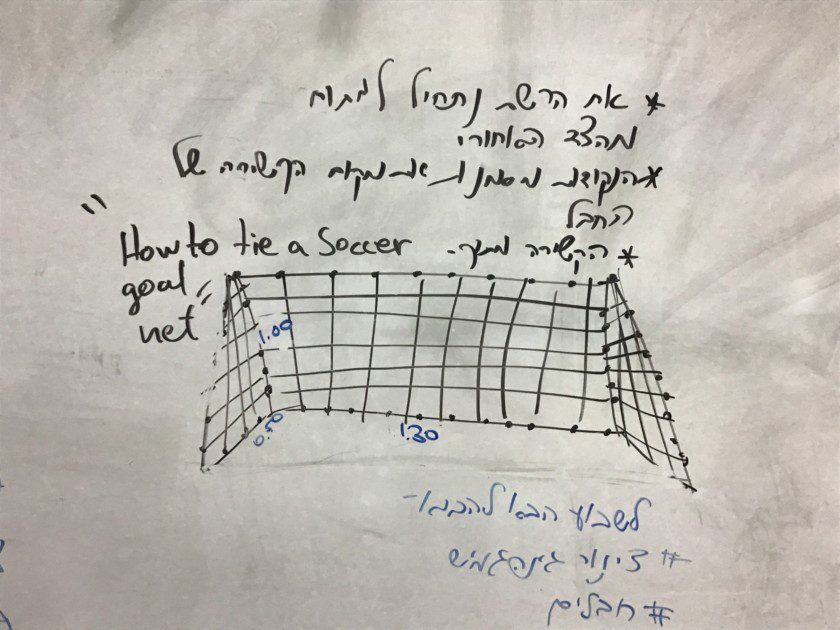 * את הרשת נתחיל למתוח
מהצד האחורי
* הנקודות מסמנות את מקום הקשירה של
החבל
* הקשירה מתוך -
"How to tie a Soccer
goal
net"
1.00
0.50
1.30
לשבוע הבא להביא -
# צינור גינה גמיש
# חבלים